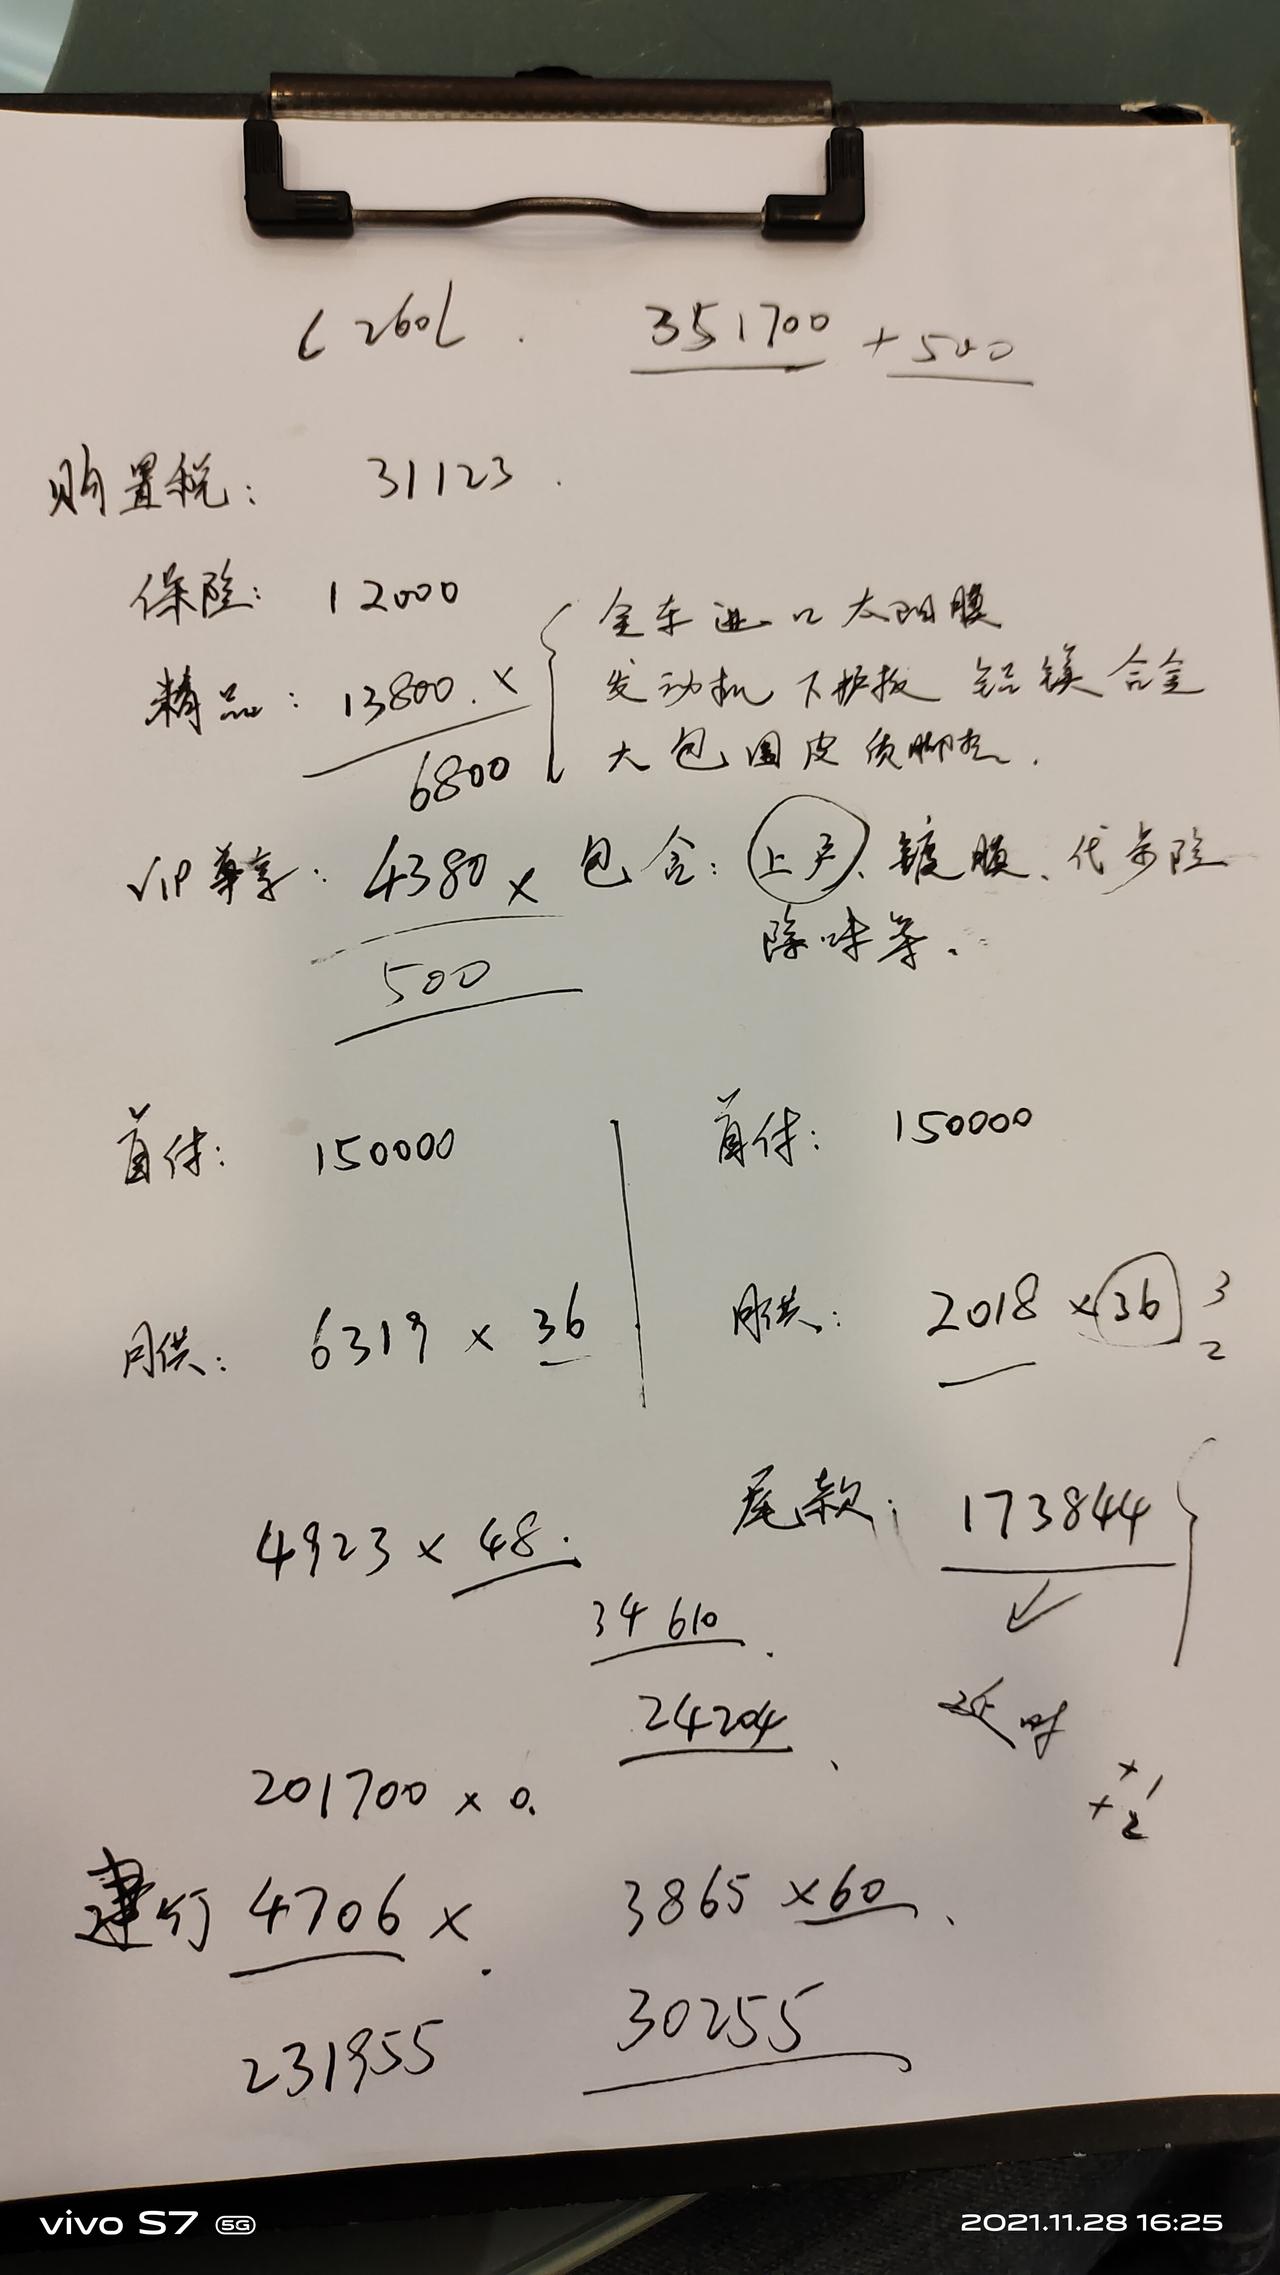 C260L. 351700 + 500
购置税: 31123.
保险: 12000
精品: 13800. x
6800
全车进口太阳膜
发动机下护板 铝镁合金
大包围皮质脚垫.
VIP尊享: 4380 x 包含: 上户、镀膜、代步险
除味等.
500
首付: 150000
月供: 6319 x 36
4923 x 48.
首付: 150000
月供: 2018 x 36 3
2
尾款: 173844
延时
+1
+2
34610.
24204.
201700 x 0.
建行 4706 x. 3865 x 60.
231955 30255
vivo S7 5G 2021.11.28 16:25